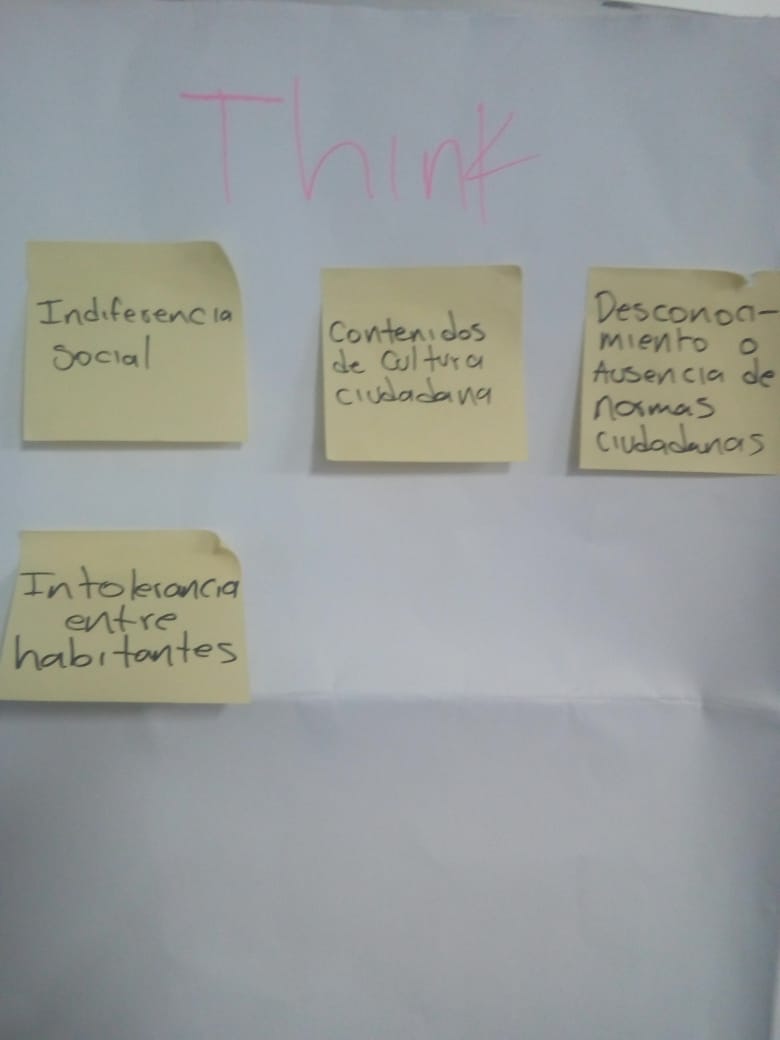 Think
Indiferencia
Social
Contenidos
de Cultura
ciudadana
Desconoci-
miento o
Ausencia de
normas
ciudadanas
Intolerancia
entre
habitantes